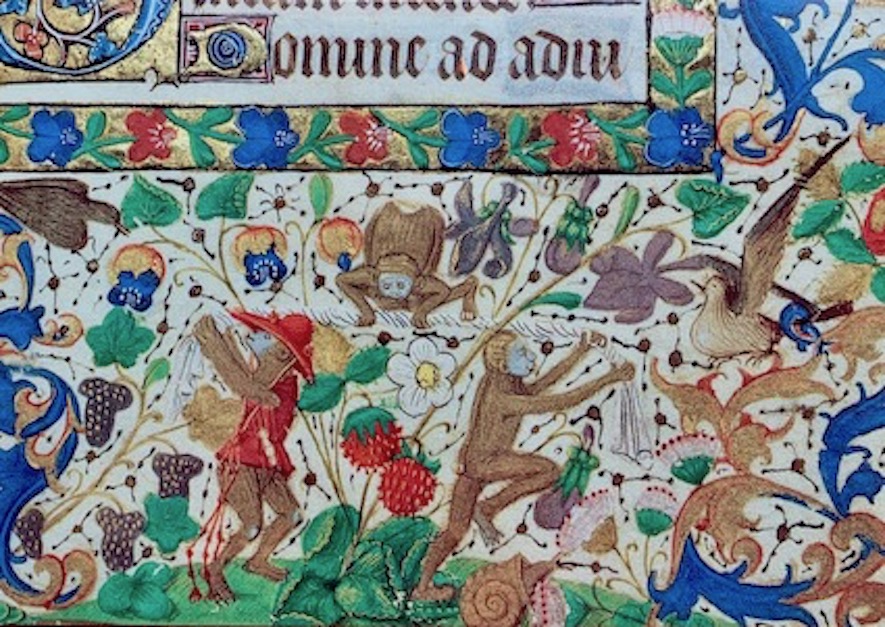 Domine ad adiu